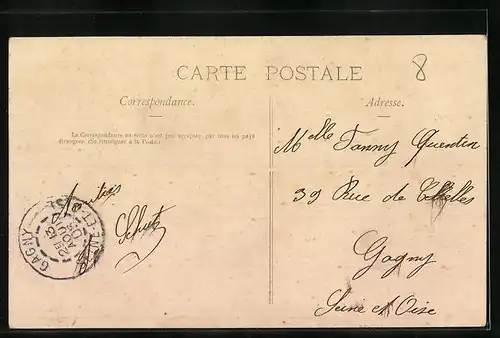 CARTE POSTALE
8
Correspondance.
Adresse.
La Correspondance au recto n'est pas acceptée par tous les pays
étrangers (Se renseigner à la Poste.)
Melle Fanny Quentin
39 Rue de Chelles
Gagny
Seine et Oise
Amitiés
Schutz
GAGNY
SEINE-ET-OISE
AOUT
05